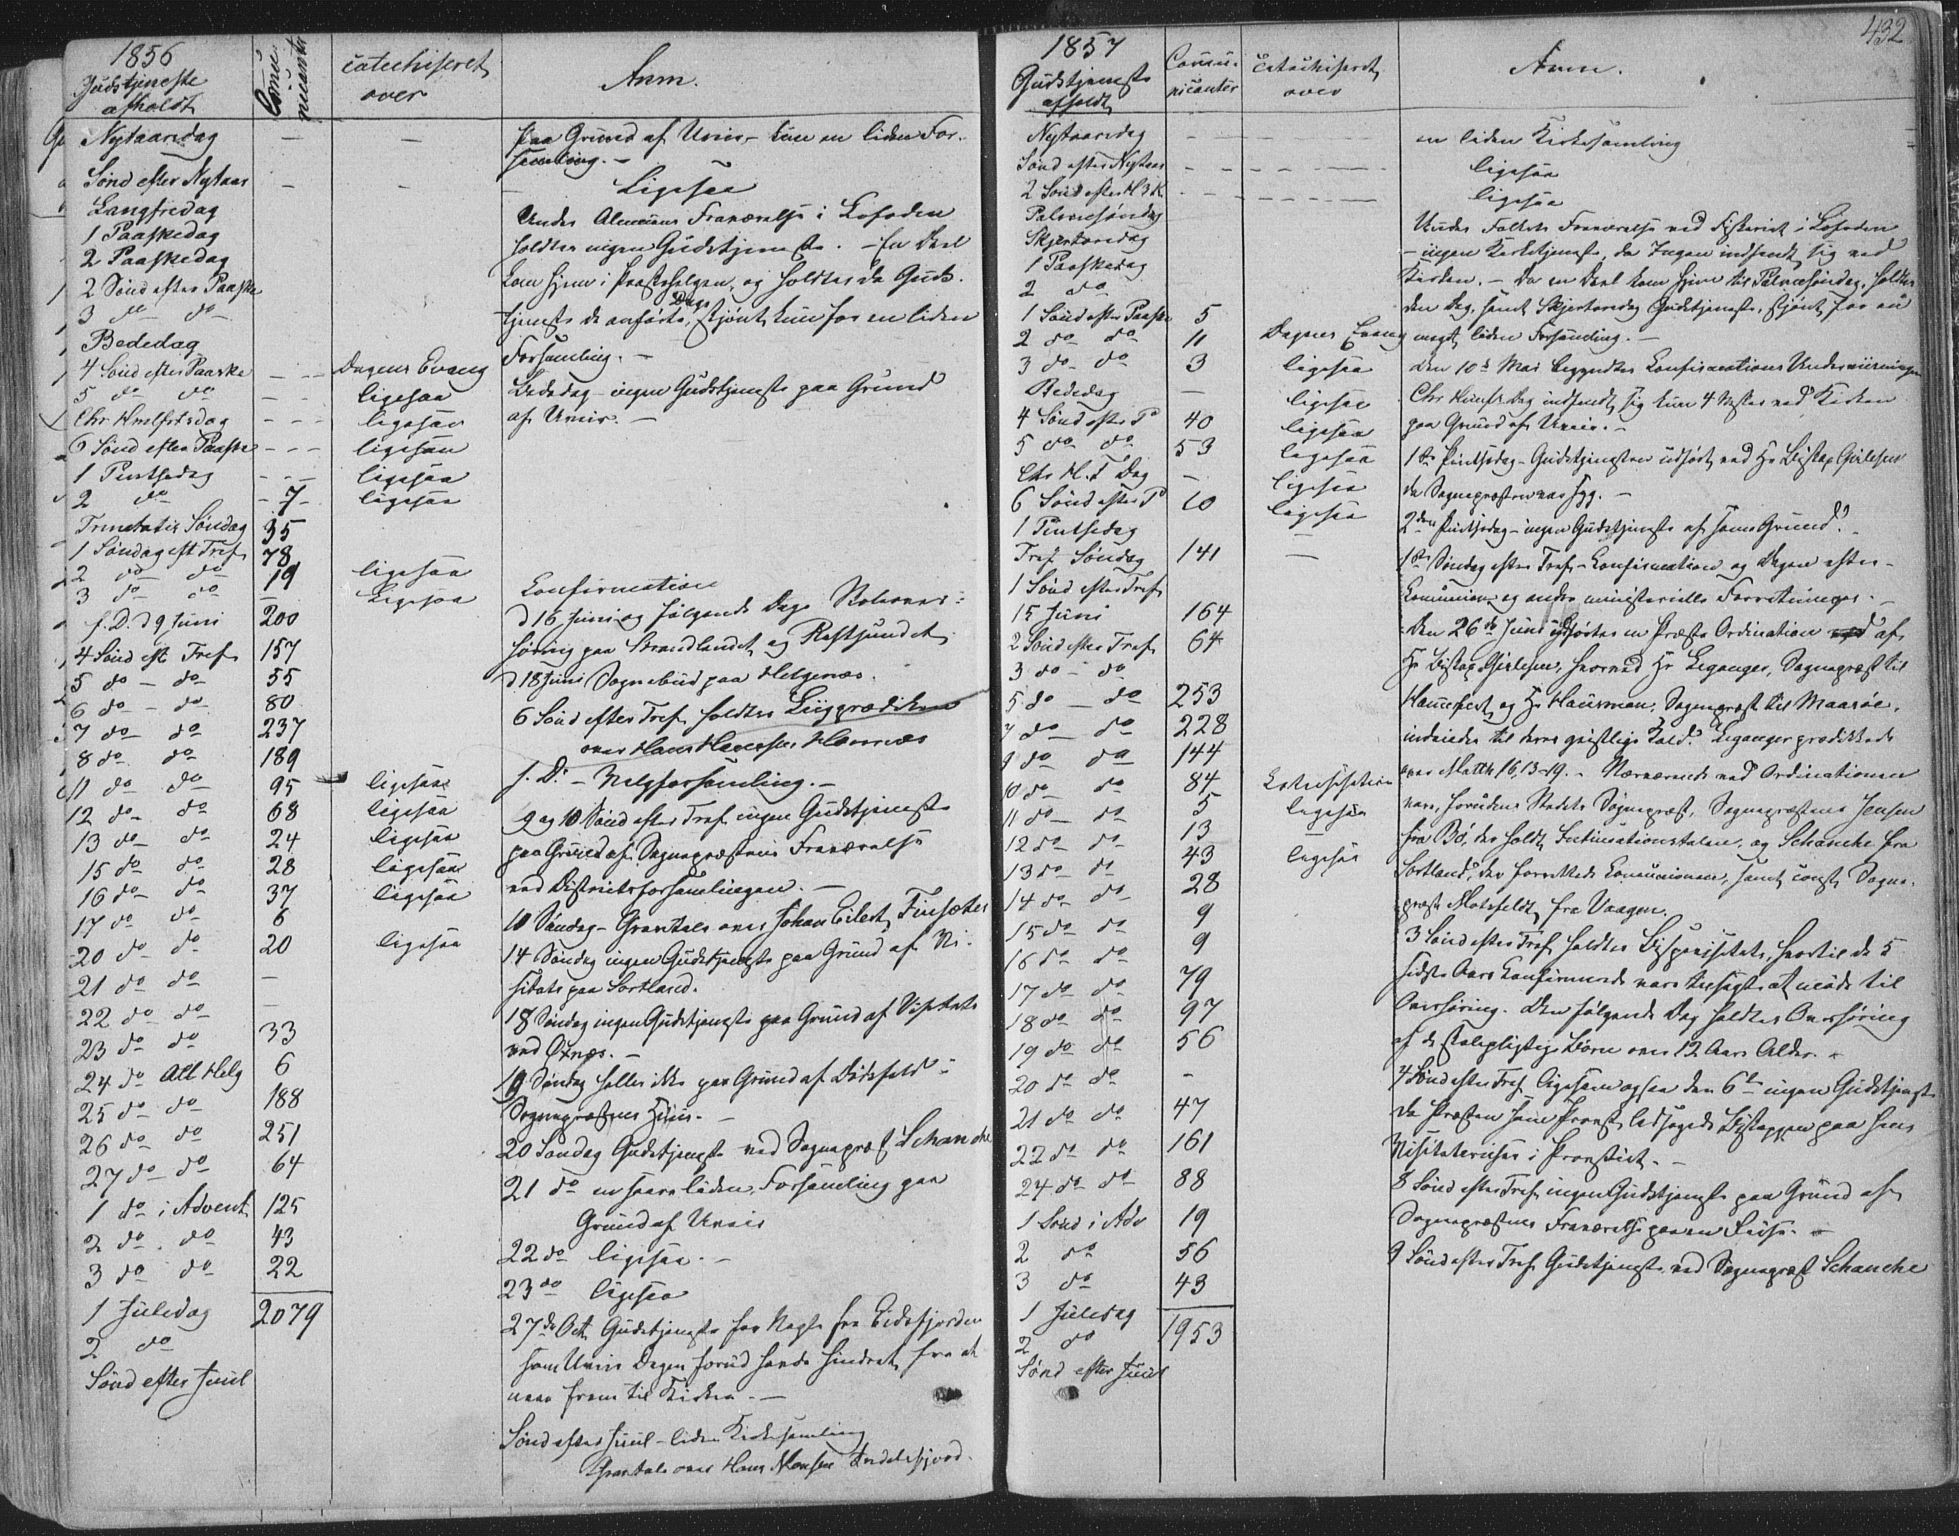 1856
Gudstjeneste
afholdt
Commu
nicanter
Catechiseret
over
Anm.
Nytaarsdag — — Paa Grund af Uveir, kun en liden For-
samling. —
Sønd efter Nytaar — — Ligesaa
Langfredag
1 Paaskedag
2 Paaskedag
2 Sønd efter Paaske
3 do do
Bededag
4 Sønd efter Paaske — Dagens Evang
5 do do — ligesaa
Chr Himlfartsdag — ligesaa
6 Sønd efter Paaske — ligesaa
1 Pintsedag — ligesaa
2 do 7 ligesaa
Trinitatis Søndag 35
1 Søndag eft Tref 78
2 do do 19 ligesaa
3 do do — Ligesaa
s. D. d 9 Juni 200
4 Sønd eft Tref 157
5 do — do 55
6 do — do 80
7 do do 237
8 do do 189
11 do do 95 ligesaa
12 do do 68 ligesaa
13 do do 24 ligesaa
15 do do 28 ligesaa
16 do do 37 ligesaa
17 do do 6
20 do do 20 ligesaa
21 do do —
22 do do —
23 do do 33
24 do All Helg 6
25 do do 188
26 do do 251
27 do do 64
1 do i Advent 125
2 do do 43
3 do do 22
1 Juledag 2079
2 do
Sønd efter Juul
Under Almuens Fraværelse i Lofoden
holdtes ingen Gudstjeneste. — En Deel
kom hjem i Paaskehelgen, og holdtes da Guds-
tjeneste de anførte Dage, skjønt kun for en liden
Forsamling. —
Bededag — ingen Gudstjeneste paa Grund
af Uveir. —
Confirmation
d 16 Juni og følgende Dage
paa Brandlandet og Raftsundet
d 18 Juni Sognebud paa Helgenæs.
6 Sønd efter Tref holdtes Liigprædiken
over Hans
s. D. — Valgforsamling. —
9 og 10 Sønd efter Tref ingen Gudstjeneste
paa Grund af Sognepræstens Fraværelse
ved Districtsforsamlingen. —
10 Søndag — Gravtale over Johan Eilert
14 Søndag ingen Gudstjeneste paa Grund af Vi-
sitats paa Sortland.
18 Søndag ingen Gudstjeneste paa Grund af Visitats
ved Øxnæs. —
19 Søndag heller ikke paa Grund af Dødsfald i
Sognepræstens Huus. —
20 Søndag Gudstjeneste ved Sognepræst Schanche
21 do en saare liden Forsamling paa
Grund af Uveir
22 do ligesaa. —
23 do ligesaa
27 de Oct Gudstjeneste for Nogle fra Eidsfjorden
som Uveir Dagen forud havde hindret fra at
naae frem til Kirken. —
Sønd efter Juul — liden Kirkesamling
Gravtale over Hans Monsen
432
1857
Gudstjeneste
afholdt
Commu-
nicanter
Catechiseret
over
Anm.
Nytaarsdag — — en liden Kirkesamling
Sønd efter Nytaar — — ligesaa
2 Sønd efter H 3 K — — ligesaa
Palmesøndag
Skjertorsdag
1 Paaskedag
2 do
1 Sønd efter Paaske 5
2 do do 11 Dagens Evang
3 do do 3 ligesaa
Bededag — ligesaa
4 Sønd efter P 40 ligesaa
5 do do 53 ligesaa
Chr H. F Dag — ligesaa
6 Sønd efter P 10 ligesaa
1 Pintsedag
Tref Søndag 141 —
1 Sønd efter Tref
15 Juni 164
2 Sønd efter Tref 64
3 do — do
5 do — do 253
7 do do 228
9 do do 144
10 do do 84 Catechisation
11 do do 5 ligesaa
12 do do 13
13 do do 43 ligesaa
14 do do 28
15 do do 9
16 do do 9
17 do do 79
18 do do 97
19 do do 56
20 do do —
21 do do 47
22 do do 161
24 do do 88
1 Sønd i Adv 19
2 do 56
3 do 43
1 Juledag
2 do 1953
Sønd efter Juul
Under Folkets Fraværelse ved Fiskeriet i Lofoden
— ingen Kirketjeneste, da Ingen indfandt sig ved
Kirken. — Da en Deel kom hjem til Palmesøndag, holdtes
den Dag, samt Skjertorsdag Gudstjeneste, skjønt for en
meget liden Forsamling. —
Den 10de Mai begyndtes Confirmations Underviisningen
Chr Himf. Dag indfandt sig kun 4 Mster ved Kirken
paa Grund af Uveir. —
1ste Pintsedag — Gudstjenesten udført ved Hr Biskop Gislesen
da Sognepræsten var syg. —
2den Pintsedag — ingen Gudstjeneste af samme Grund.
1ste Søndag efter Tref — Confirmation og Dagen efter —
Communion og andre ministerielle Forretninger. —
Den 26de Juni udførtes en Præste Ordination af
Hr Biskop Gislesen, hvorved Hr Leganger, Sognepræst til
Hammerfest, og Hr Hausman, Sognepræst til Maasøe,
indviedes til deres geistlige Kald. Leganger prædikede
over Matth 16, 13-19. — Nærværende ved Ordinationen
vare, foruden Stedets Sognepræst, Sognepræsterne Jensen
fra Bø, der holdt Intimationstalen, og Schanche fra
Sortland, der forrettede Communionen, samt const. Sogne-
præst Motzfeldt fra Vaagen.
3 Sønd efter Tref holdtes Bispevisitats, hvortil de 5
sidste Aars Confirmerede vare tilsagte at møde til
Overhøring. Den følgende Dag holdtes Overhøring
af de skolepligtige Børn over 12 Aars Alder. —
4 Sønd efter Tref ligesom ogsaa den 6te ingen Gudstjeneste
da Præsten som Provst ledsagede Biskoppen paa hans
Visitatsreise i Provstiet. —
8 Sønd efter Tref ingen Gudstjeneste paa Grund af
Sognepræstens Fraværelse paa en Reise. —
9 Sønd efter Tref Gudstjeneste ved Sognepræst Schanche